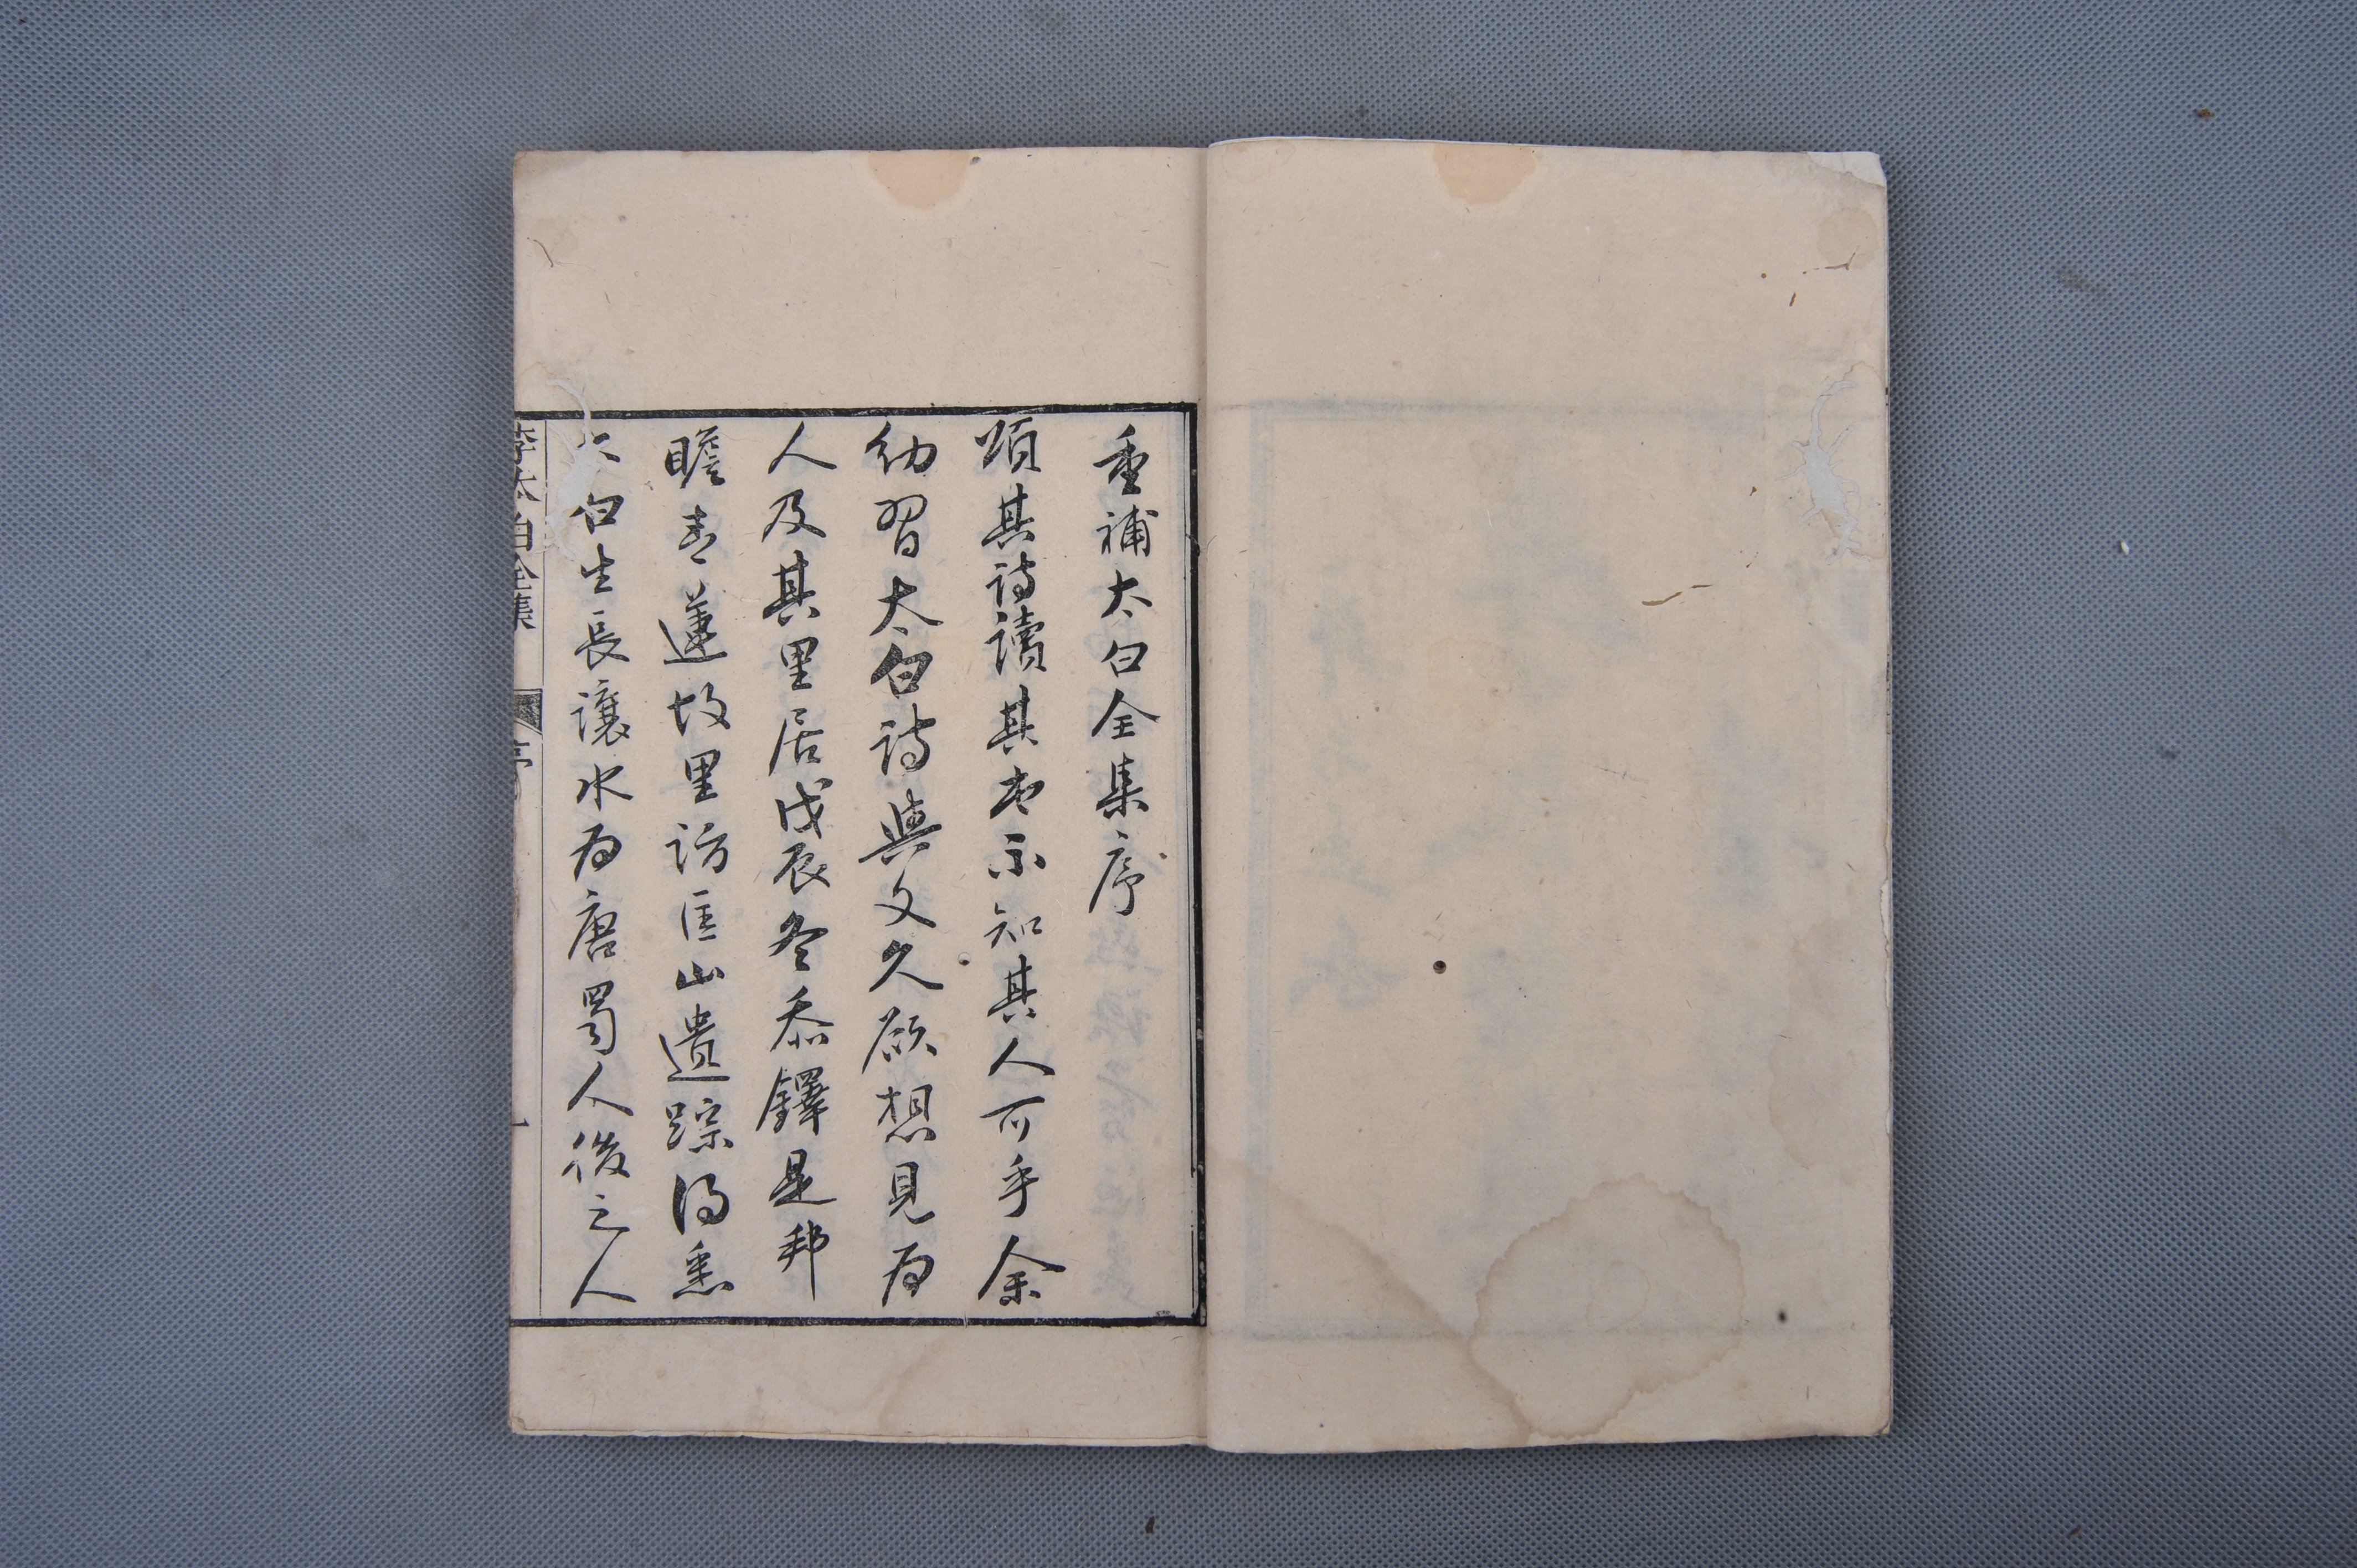 重補太白全集序
頌其詩讀其書不知其人可乎余
幼習太白詩與文久願想見为
人及其里居戊辰冬忝鐸是邦
瞻青蓮故里訪匡山遺踪得悉
太白生長讓水为唐蜀人後之人
李太白全集 序 一